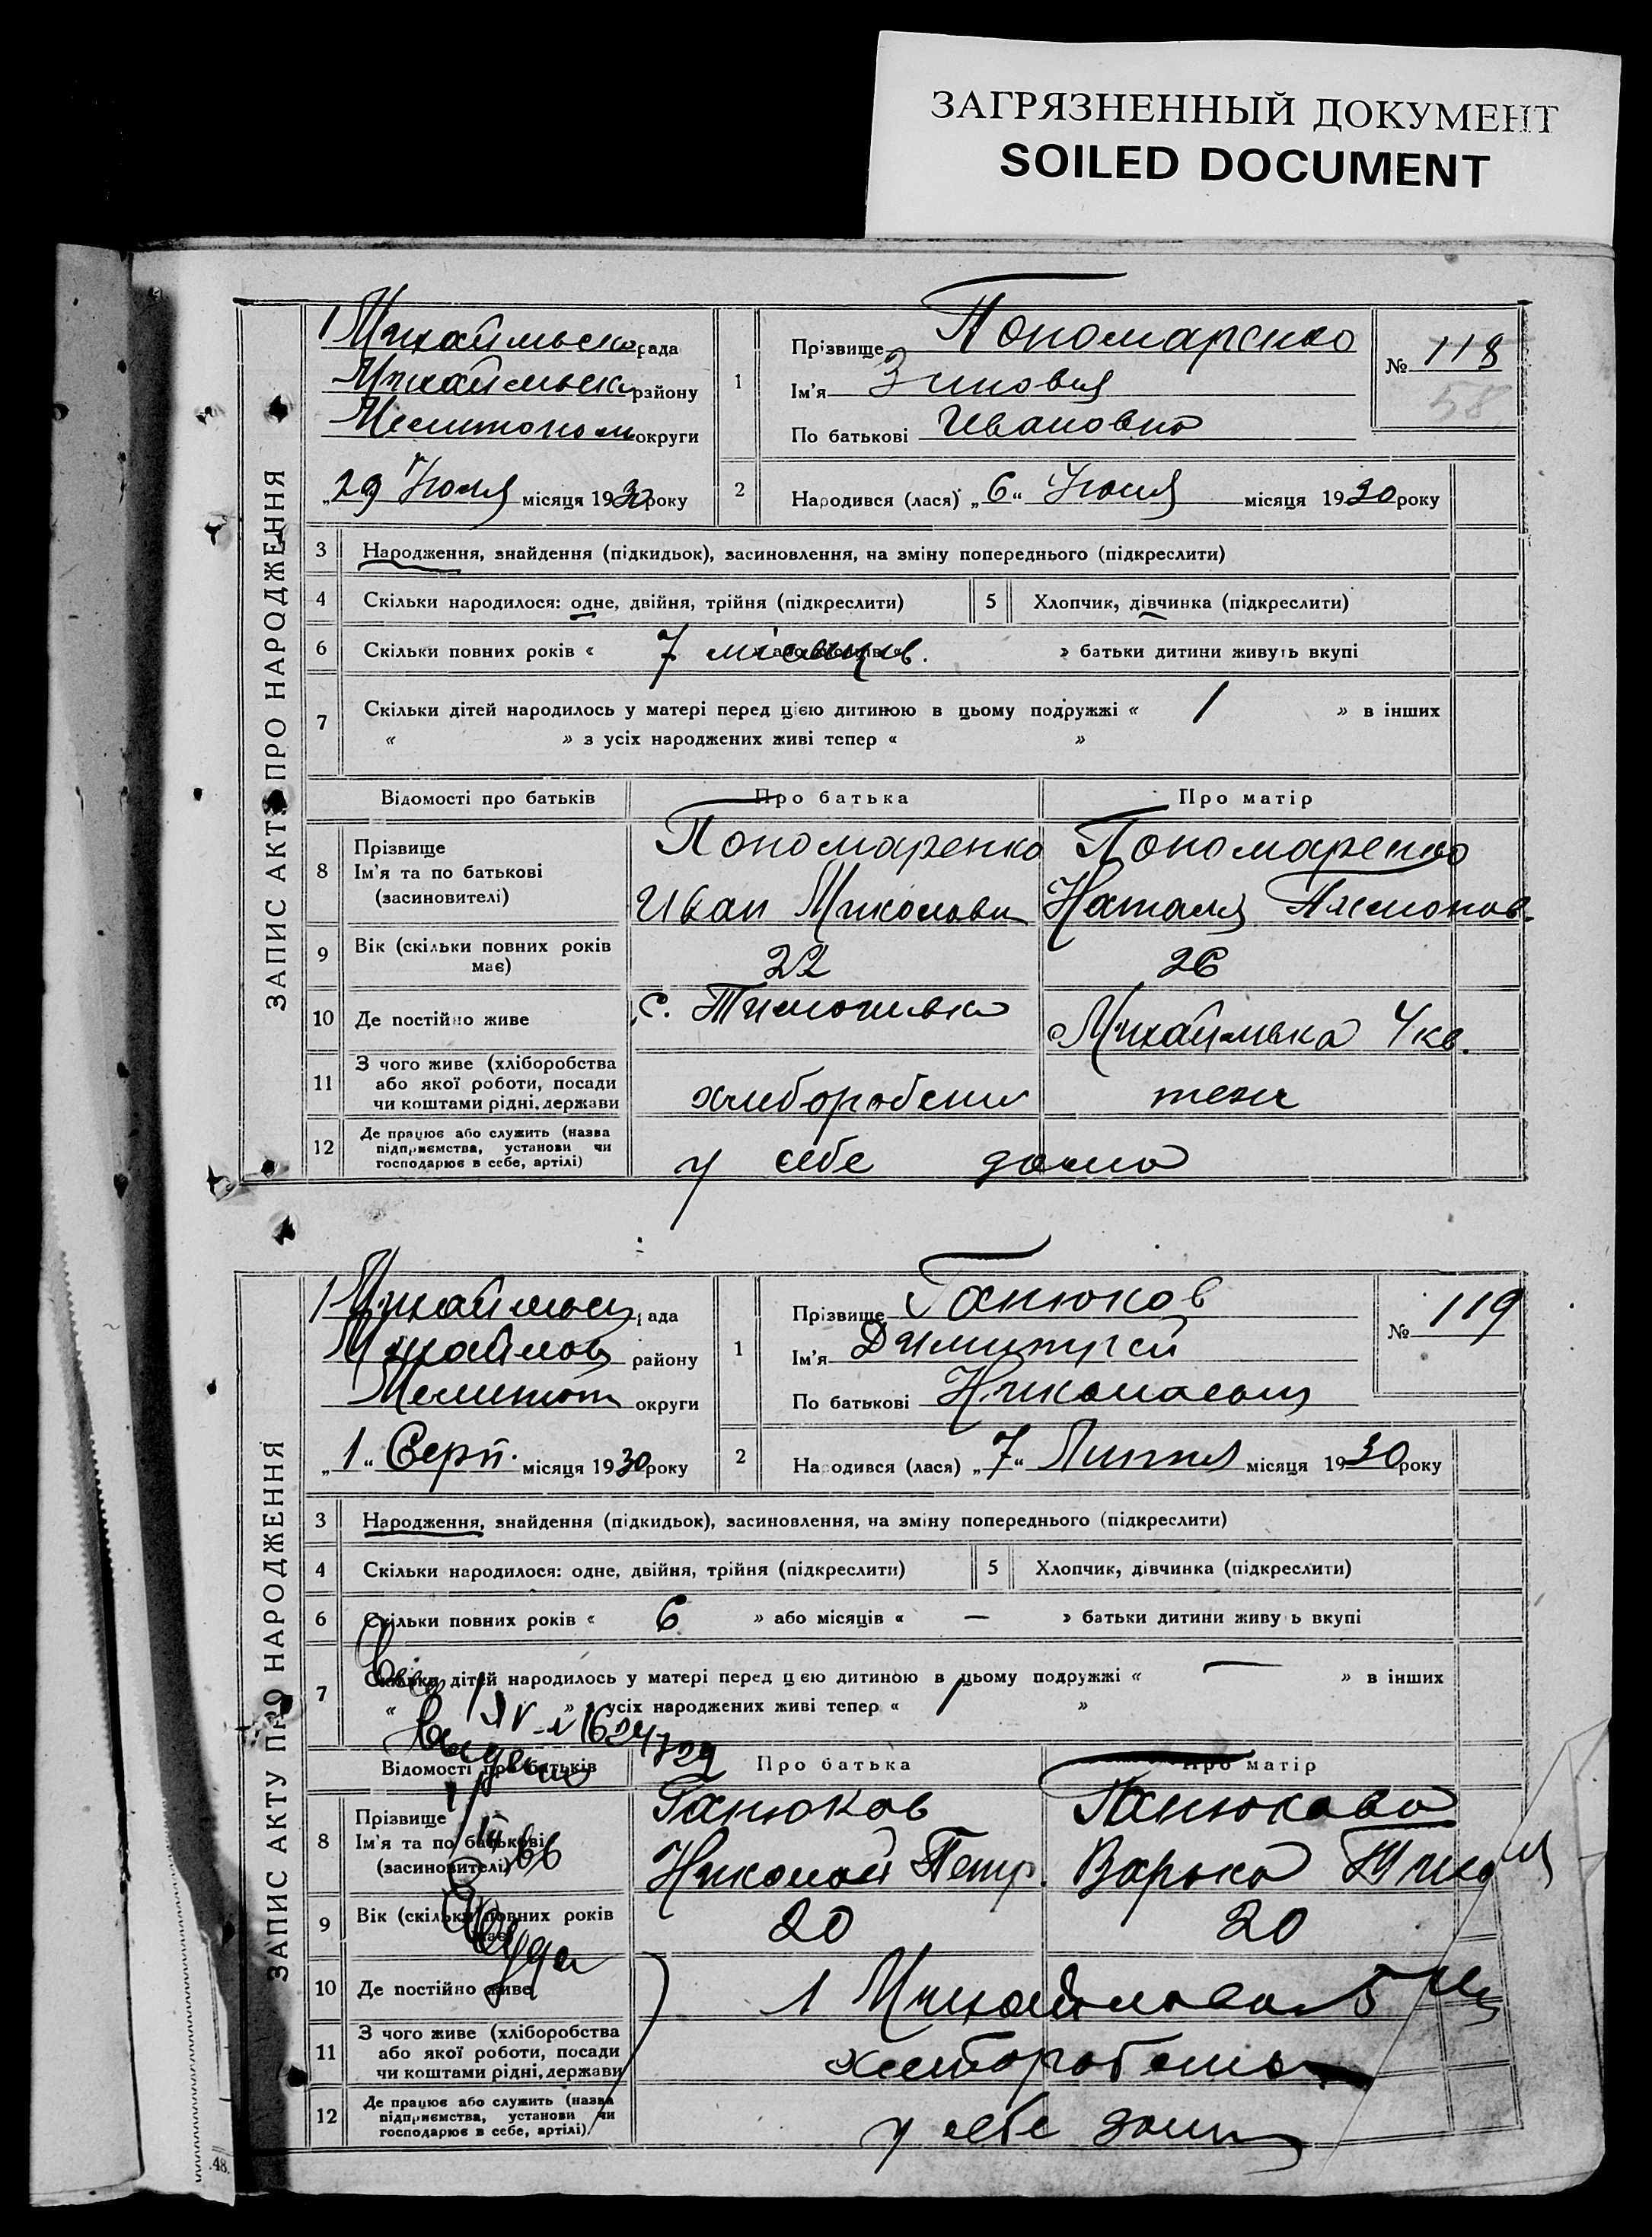 ЗАГРЯЗНЕННЫЙ ДОКУМЕНТ
SOILED DOCUMENT
ЗАПИС АКТУ ПРО НАРОДЖЕННЯ
рада
району
округи
„29 Июля місяця 1930 року
1 Прізвище Пономаренко
Ім'я
По батькові Ивановна
№ 118
58
2 Народився (лася) „6“ Июля місяця 1930 року
3 Народження, знайдення (підкидьок), засиновлення, на зміну попереднього (підкреслити)
4 Скільки народилося: одне, двійня, трійня (підкреслити)
5 Хлопчик, дівчинка (підкреслити)
6 Скільки повних років « 7 місяців. » або місяців « » батьки дитини живуть вкупі
7 Скільки дітей народилось у матері перед цією дитиною в цьому подружжі « 1 » в інших
« » з усіх народжених живі тепер « »
Відомості про батьків Про батька Про матір
8 Прізвище Пономаренко Пономаренко
Ім'я та по батькові
(засновителі) Иван Миколови Наталя
9 Вік (скільки повних років
має) 22 26
10 Де постійно живе с. Тимошивка Михайлвка 4 кв.
11 З чого живе (хліборобства
або якої роботи, посади
чи коштами рідні, держави хлиборобени теж
12 Де працює або служить (назва
підприємства, установи чи
господарює в себе, артілі) у себе дома
ЗАПИС АКТУ ПРО НАРОДЖЕННЯ
рада
району
Мелитоп округи
„1“ Серп. місяця 1930 року
1 Прізвище Ганюков
Ім'я Димитрей
По батькові
№ 119
2 Народився (лася) „7“ Липня місяця 1930 року
3 Народження, знайдення (підкидьок), засиновлення, на зміну попереднього (підкреслити)
4 Скільки народилося: одне, двійня, трійня (підкреслити)
5 Хлопчик, дівчинка (підкреслити)
6 Скільки повних років « 6 » або місяців « — » батьки дитини живуть вкупі
7 Скільки дітей народилось у матері перед цією дитиною в цьому подружжі « — » в інших
« » з усіх народжених живі тепер « 1 »
Відомості про батьків Про батька Про матір
8 Прізвище Ганюков Ганюкова
Ім'я та по батькові
(засновителі) Николай Петр. Варька
9 Вік (скільки повних років
має) 20 20
10 Де постійно живе 1 Михайловка 5
11 З чого живе (хліборобства
або якої роботи, посади
чи коштами рідні, держави
12 Де працює або служить (назва
підприємства, установи чи
господарює в себе, артілі) у себе
48.